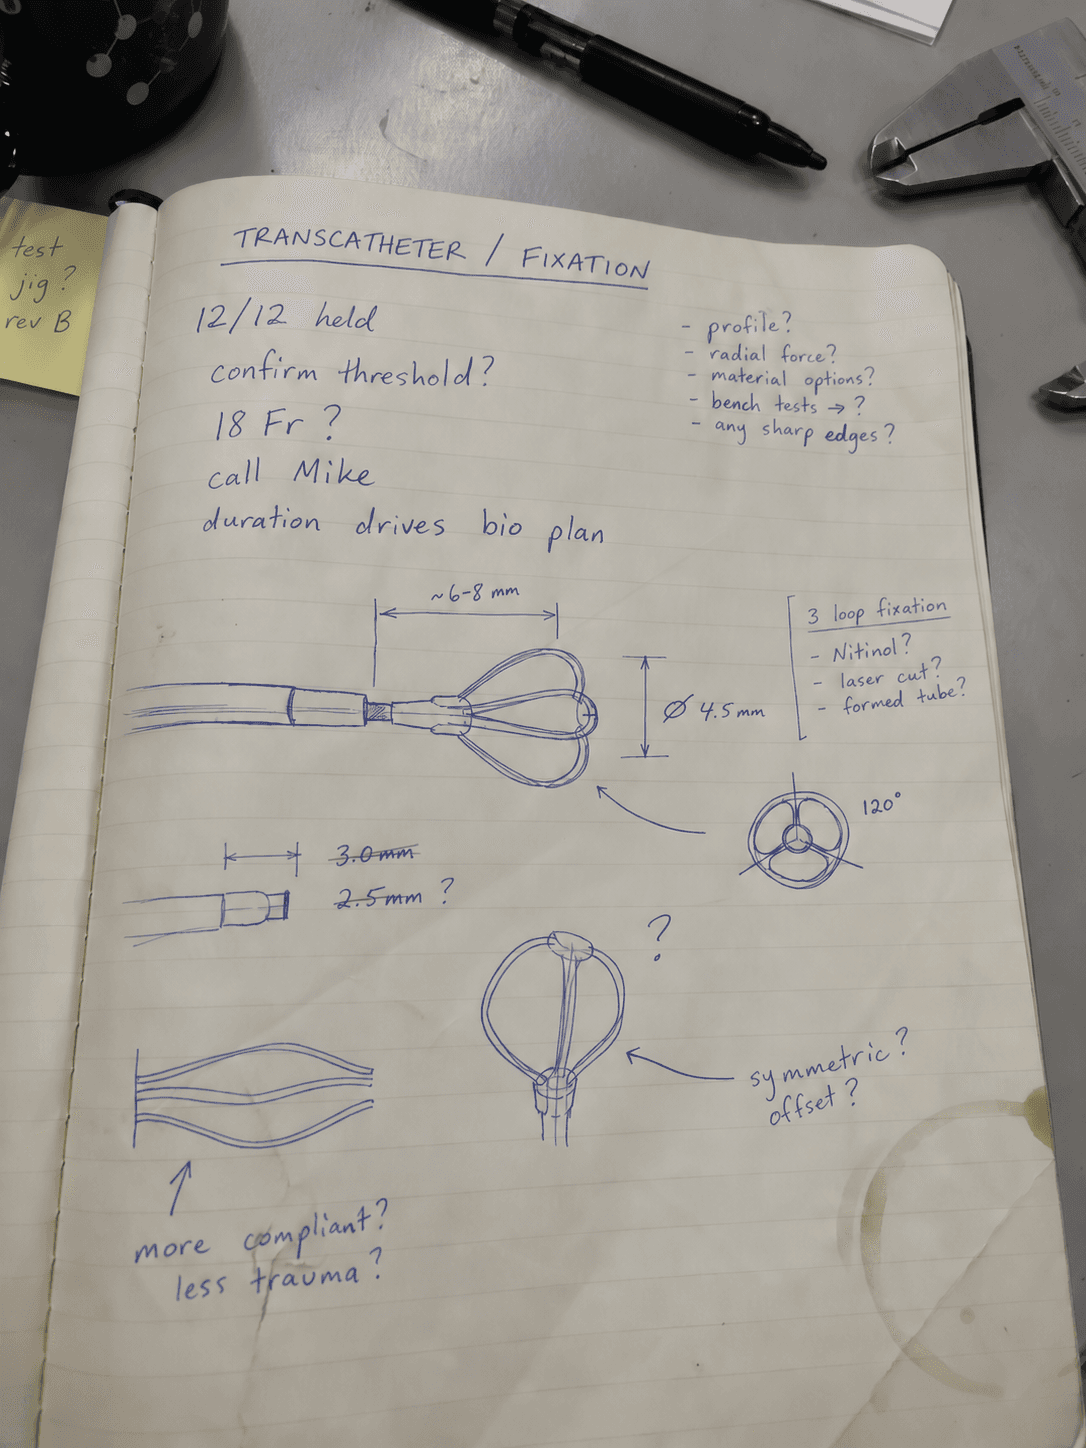 test
jig?
rev B
TRANSCATHETER / FIXATION
12/12 held
confirm threshold?
18 Fr ?
call Mike
duration drives bio plan
- profile?
- radial force?
- material options?
- bench tests → ?
- any sharp edges?
~6-8 mm
Ø 4.5 mm
3 loop fixation
- Nitinol?
- laser cut?
- formed tube?
120°
3.0mm
2.5mm ?
?
symmetric?
offset?
more compliant?
less trauma?